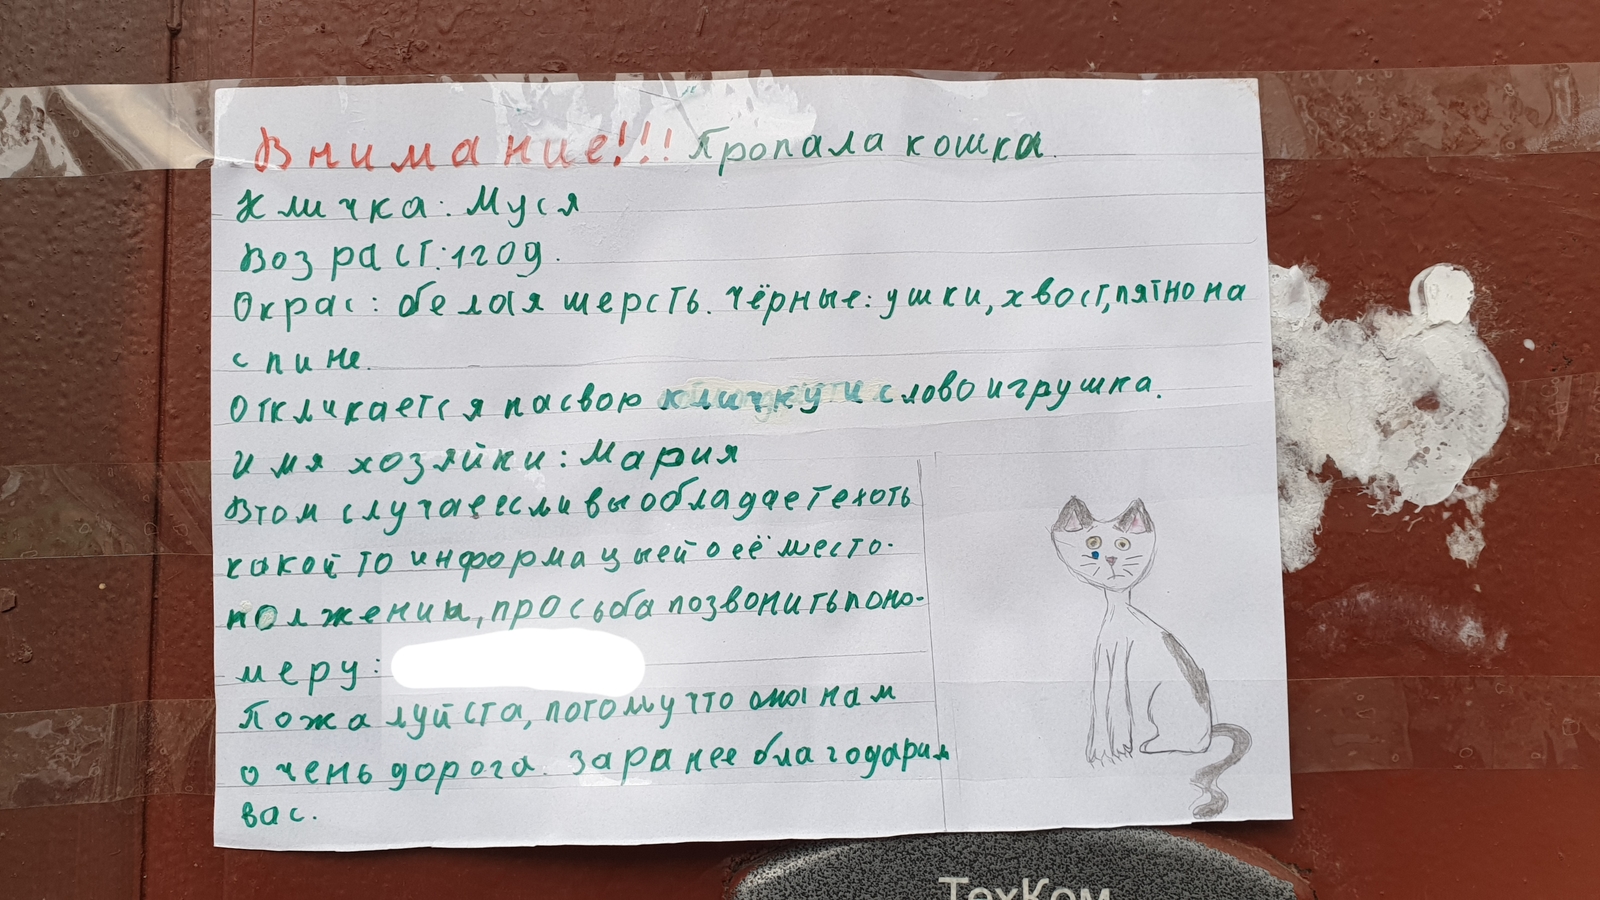 Внимание!!! Пропала кошка.
Кличка: Муся
Возраст: 1 год.
Окрас: белая шерсть. Чёрные: ушки, хвост, пятно на
спине.
Откликается на свою кличку и слово игрушка.
Имя хозяйки: Мария
В том случае если вы обладаете хоть
какой то информацыей о её место-
полжении, просьба позвонить по но-
меру:
Пожалуйста, потому что она нам
очень дорога. Заранее благодарим
вас.
ТехКом